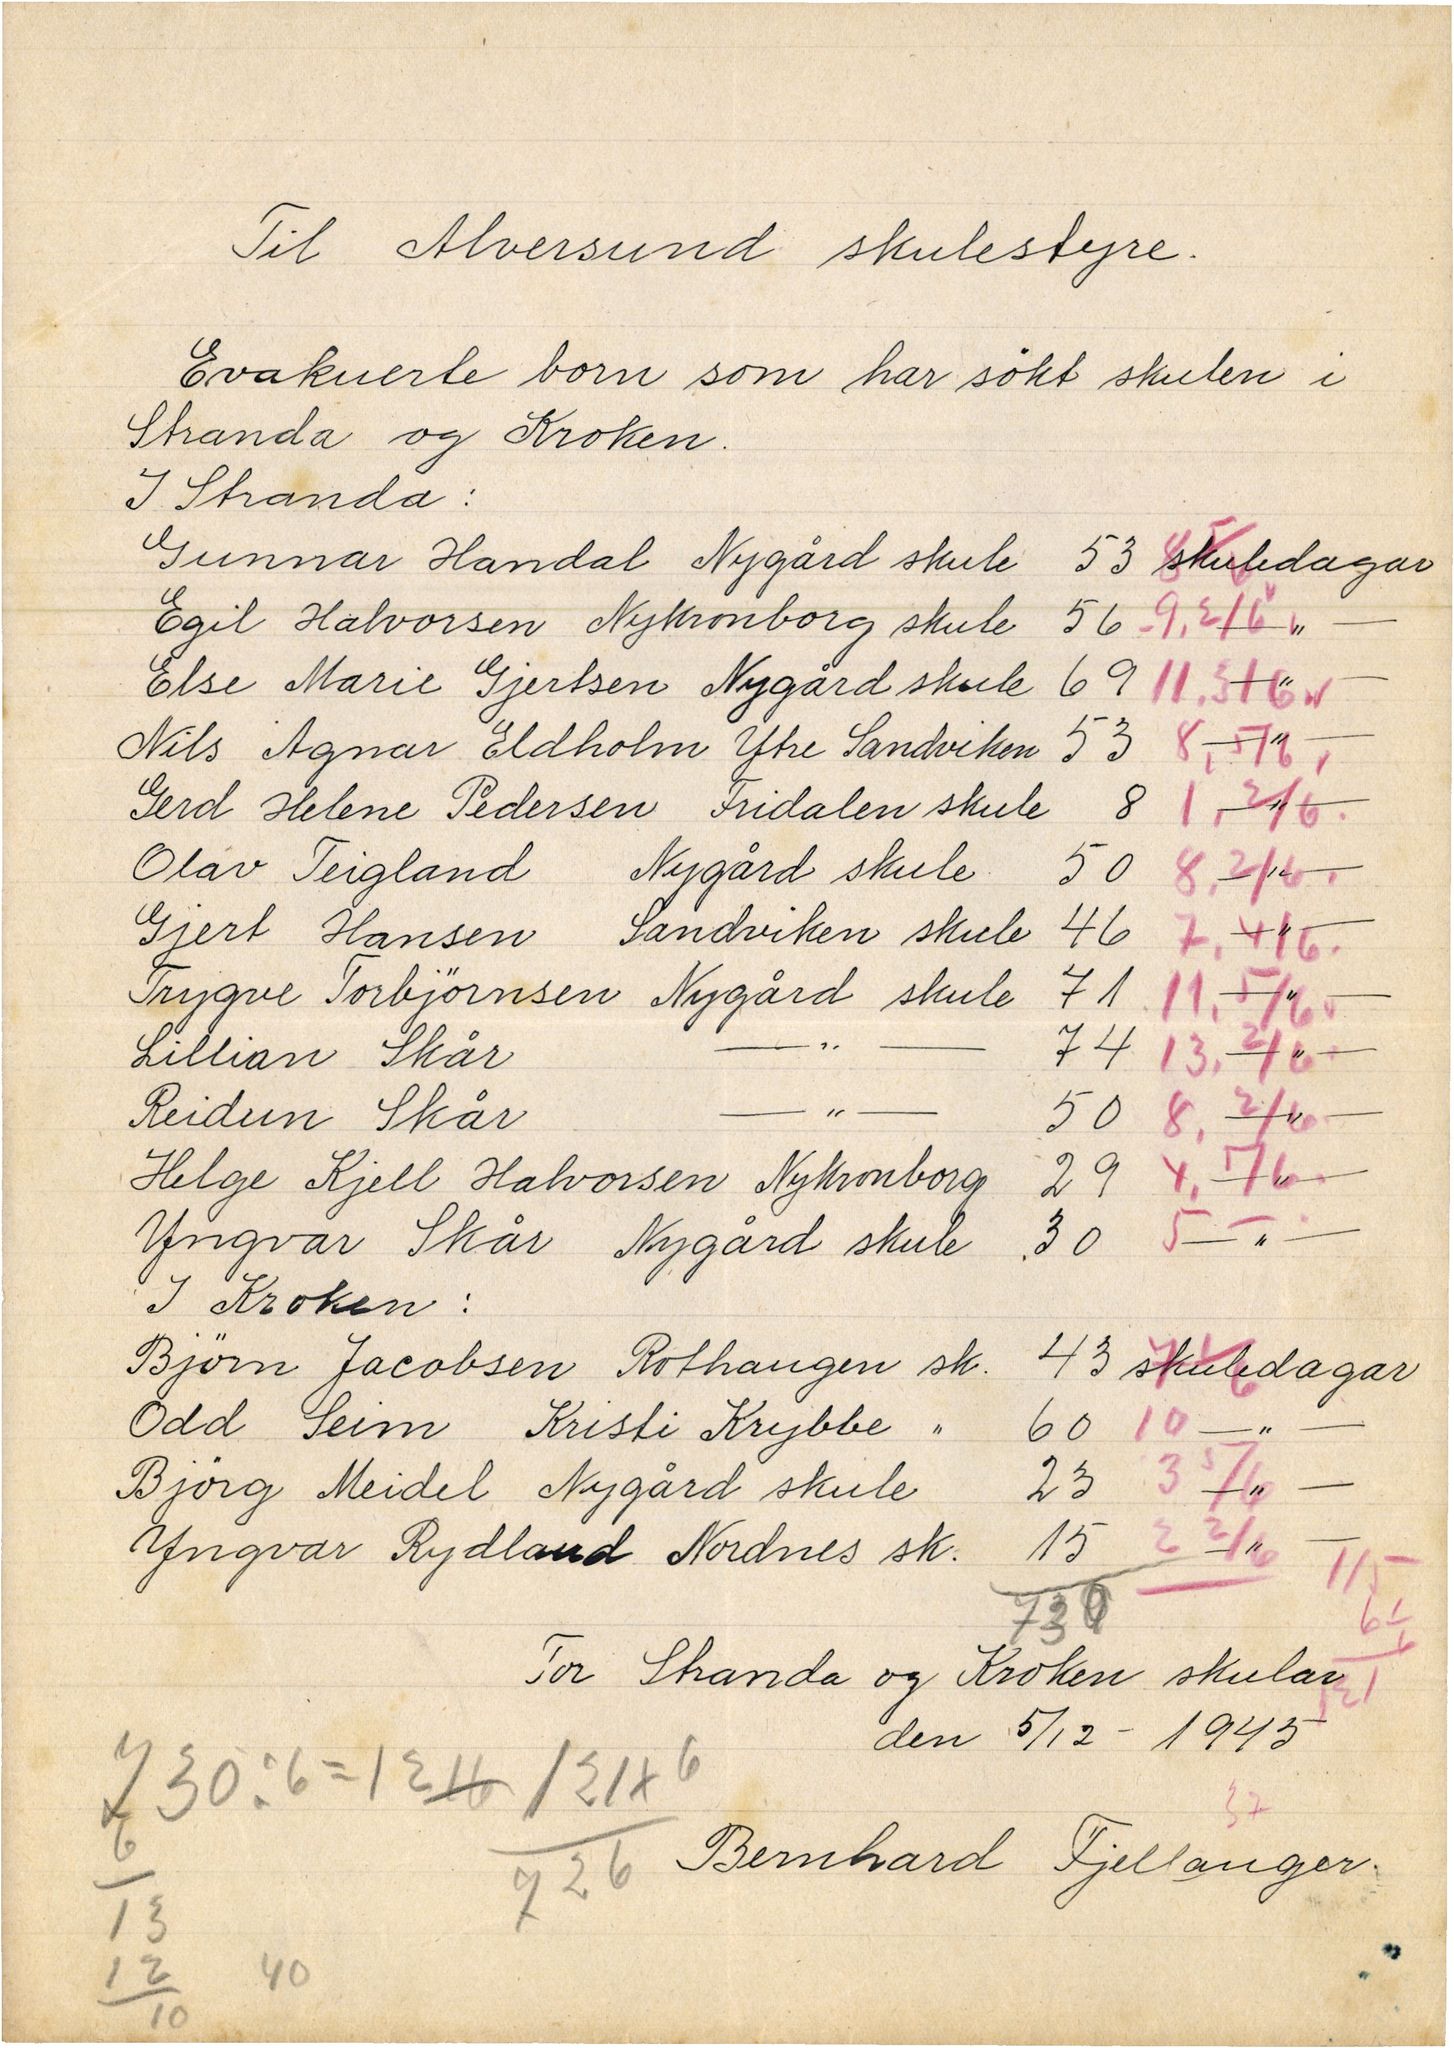 Til Alversund skulestyre.
Evakuerte born som har sökt skulen i
Stranda og Kroken.
I Stranda:
Gunnar Handal Nygård skule 53 skuledagar
Egil Halvorsen Nykronborg skule 56 9, 2/6 — " —
Else Marie Gjertsen Nygård skule 69 11, 3/6 — " —
Nils Agnar Eldholm Ytre Sandviken 53 8, 5/6 — " —
Gerd Helene Pedersen Fridalen skule 8 1, 2/6 — " —
Olav Teigland Nygård skule 50 8, 2/6 — " —
Gjert Hansen Sandviken skule 46 7, 4/6 — " —
Trygve Torbjörnsen Nygård skule 71 11, 5/6 — " —
Lillian Skår — " — 74 13, 2/6 — " —
Reidun Skår — " — 50 8, 2/6 — " —
Helge Kjell Halvorsen Nykronborg 29 4, 5/6 — " —
Yngvar Skår Nygård skule 30 5 — " —
I Kroken:
Björn Jacobsen Rothaugen sk. 43 skuledagar
Odd Seim Kristi Krybbe " 60 10 — " —
Björg Meidel Nygård skule 23 3 5/6 — " —
Yngvar Rydland Nordnes sk. 15 2 2/6 — " —
115
730
6
For Stranda og Kroken skular
121
den 5/12 - 1945
730:6=121 121x6
6
726
37
Bernhard Fjellanger.
13
12
40
10